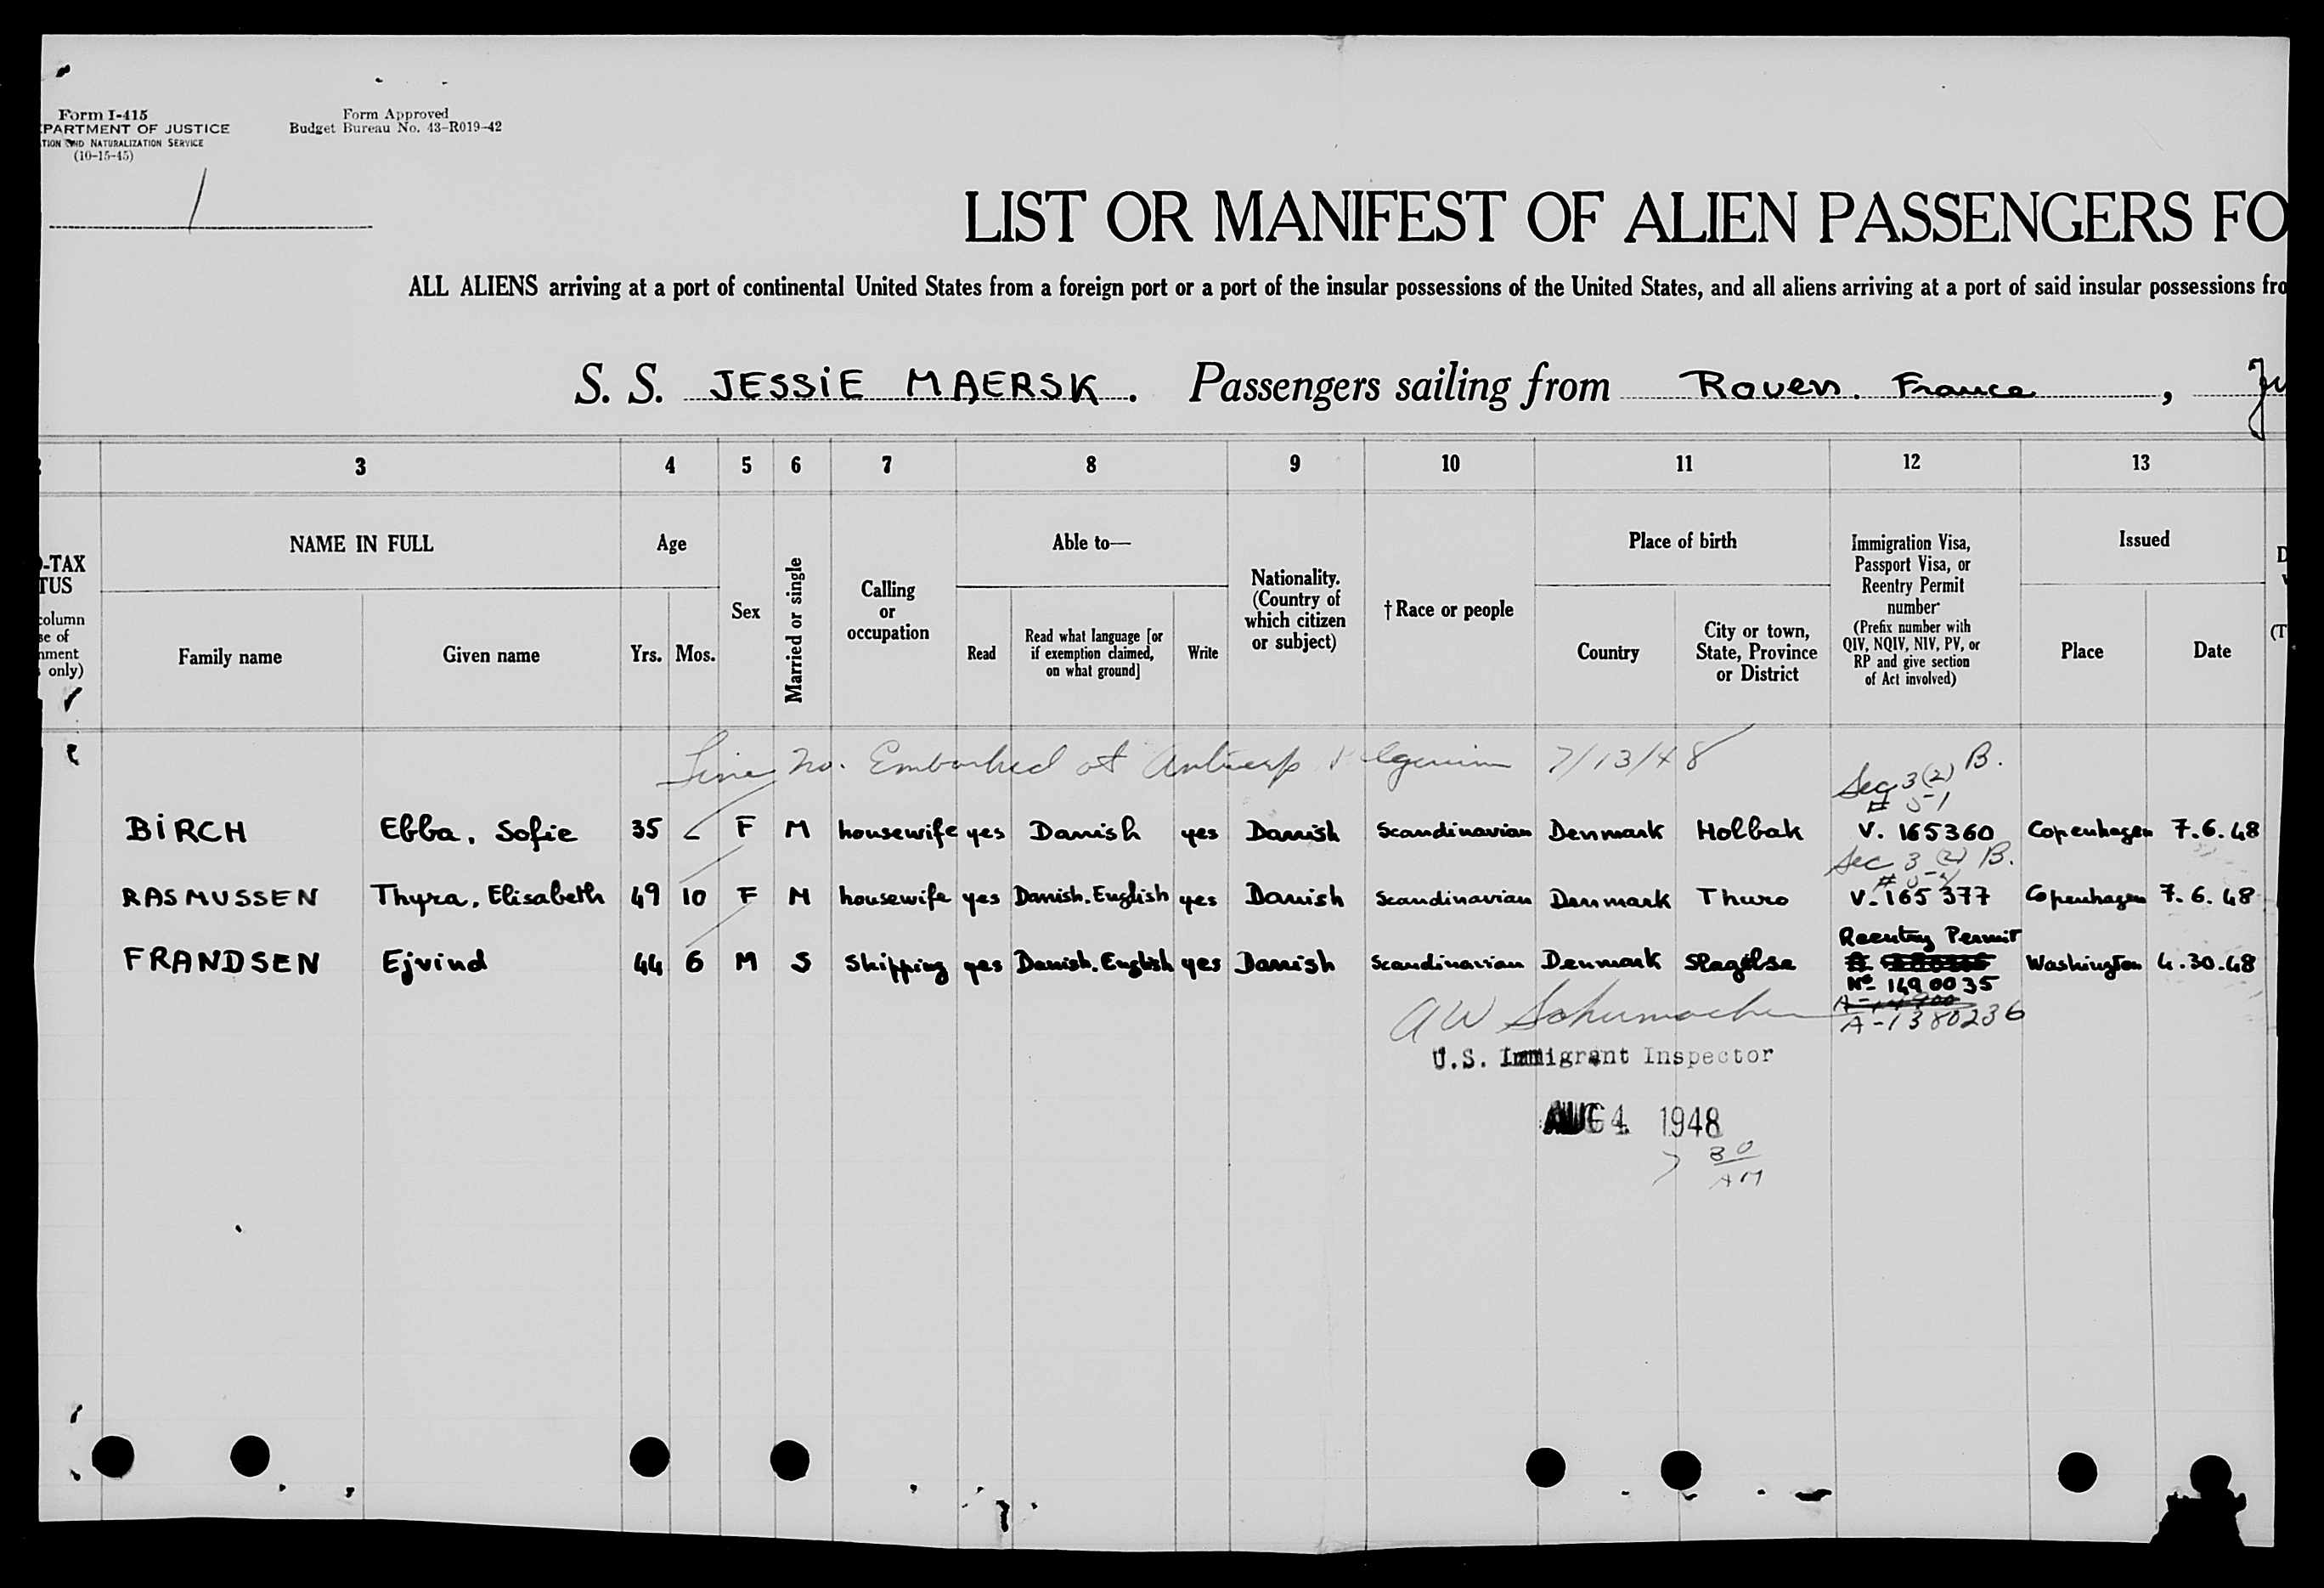 Form I-415
PARTMENT OF JUSTICE
TION AND NATURALIZATION SERVICE
(10-15-45)
Form Approved
Budget Bureau No. 43-R019-42
1
LIST OR MANIFEST OF ALIEN PASSENGERS FO
ALL ALIENS arriving at a port of continental United States from a foreign port or a port of the insular possessions of the United States, and all aliens arriving at a port of said insular possessions fro
S. S. JESSIE MAERSK. Passengers sailing from Rouen. France, Ju
3 4 5 6 7 8 9 10 11 12 13
-TAX
TUS
column
se of
nment
only)
NAME IN FULL
Family name
Given name
Age
Yrs. Mos.
Sex
Married or single
Calling
or
occupation
Able to—
Read
Read what language [or
if exemption claimed,
on what ground]
Write
Nationality.
(Country of
which citizen
or subject)
†Race or people
Place of birth
Country
City or town,
State, Province
or District
Immigration Visa,
Passport Visa, or
Reentry Permit
number
(Prefix number with
QIV, NQIV, NIV, PV, or
RP and give section
of Act involved)
Issued
Place
Date
(T
Line No. Embarked at Antwerp Belgium 7/13/48
Sec 3(2) B.
BIRCH Ebba, Sofie 35 F M housewife yes Danish yes Danish Scandinavian Denmark Holbak V. 165360 Copenhagen 7.6.48
Sec 3 (2) B.
RASMUSSEN Thyra, Elisabeth 49 10 F M housewife yes Danish. English yes Danish Scandinavian Denmark Thuro V. 165377 Copenhagen 7.6.48
Reentry Permit
FRANDSEN Ejvind 44 6 M S Shipping yes Danish. English yes Danish Scandinavian Denmark Slagelse Washington 4.30.48
No 1490035
A-1380236
AW Schumacher
U.S. Immigrant Inspector
AUG 4 1948
7 30
AM